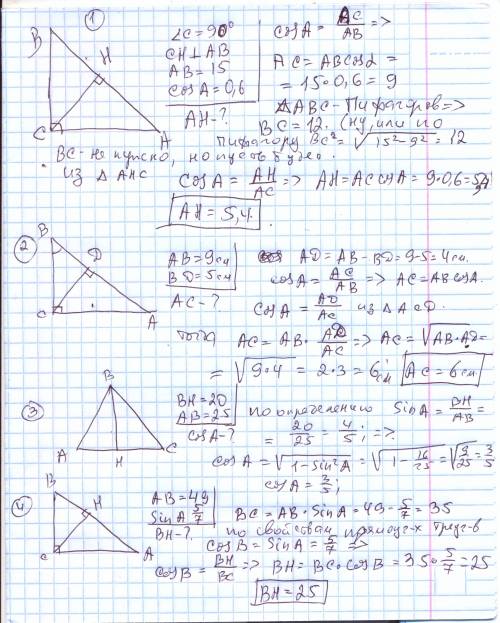 1
B
H
C
A
∠C = 90°
CH ⊥ AB
AB = 15
cosA = 0,6
AH - ?
cosA = AC/AB =>
AC = ABcosα =
= 15·0,6 = 9
△ABC - Пифагоров =>
BC = 12. (ну, или по
Пифагору BC² = √15²-9² = 12
BC - не нужно, но пусть будет.
из △AHC
cosA = AH/AC => AH = AC cosA = 9·0,6 = 5,4
AH = 5,4.
2
B
D
C
A
AB = 9см
BD = 5см
AC - ?
AD = AB - BD = 9-5 = 4см.
cosA = AC/AB => AC = AB cosA.
cosA = AD/AC из △ACD.
тогда AC = AB · AD/AC => AC = √AB·AD =
= √9·4 = 2·3 = 6см
AC = 6см
3
B
A
H
C
BH = 20
AB = 25
cosA - ?
по определению sinA = BH/AB =
= 20/25 = 4/5; =>
cosA = √1-sin²A = √1-16/25 = √9/25 = 3/5
cosA = 3/5;
4
B
H
C
A
AB = 49
sinA 5/7
BH - ?
BC = AB · sinA = 49 - 5/7 = 35
по свойствам прямоуг-х треуг-в
cosB = sinA = 5/7 =>
cosB = BH/BC => BH = BC·cosB = 35·5/7 = 25
BH = 25